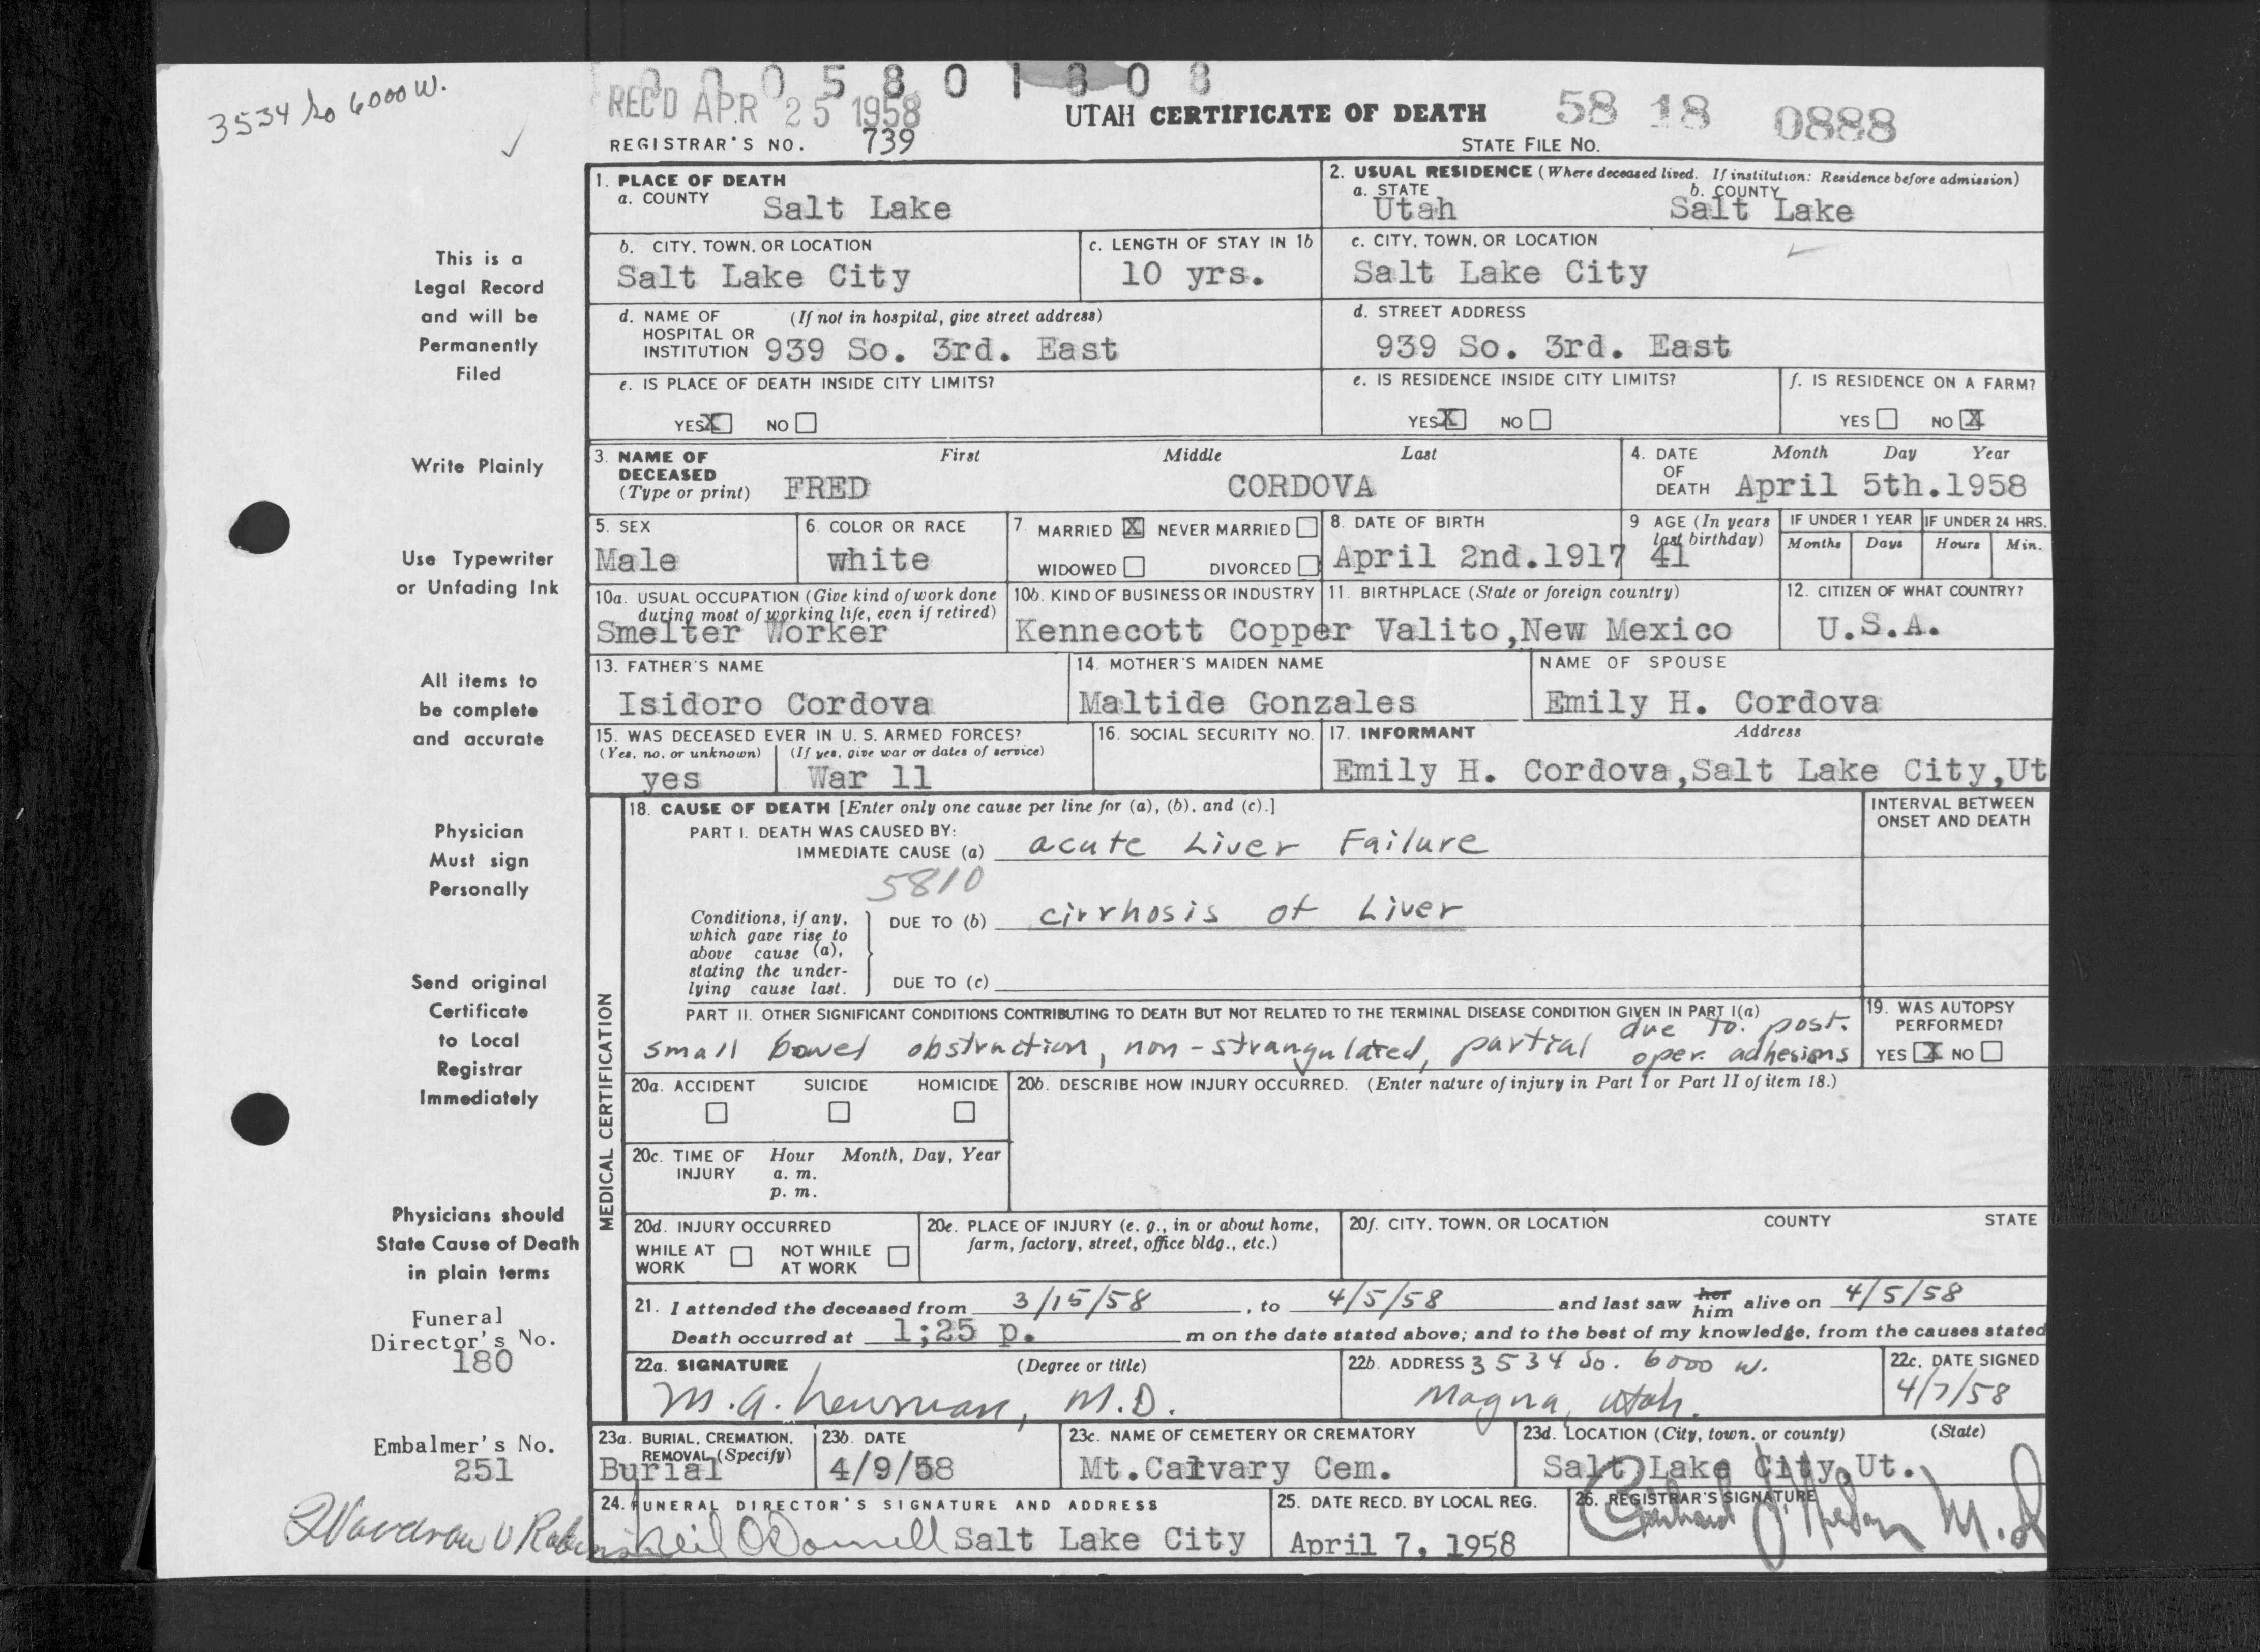 3534 So 6000 W.
0 0 0 5 8 0 1 8 0 8
REC'D APR 25 1958
UTAH CERTIFICATE OF DEATH
58 18 0888
REGISTRAR'S NO. 739
STATE FILE NO.
This is a
Legal Record
and will be
Permanently
Filed
Write Plainly
Use Typewriter
or Unfading Ink
All items to
be complete
and accurate
Physician
Must sign
Personally
Send original
Certificate
to Local
Registrar
Immediately
Physicians should
State Cause of Death
in plain terms
Funeral
Director's No.
180
Embalmer's No.
251
1. PLACE OF DEATH
a. COUNTY Salt Lake
2. USUAL RESIDENCE (Where deceased lived. If institution: Residence before admission)
a. STATE Utah b. COUNTY Salt Lake
b. CITY, TOWN, OR LOCATION
Salt Lake City
c. LENGTH OF STAY IN 1b
10 yrs.
c. CITY, TOWN, OR LOCATION
Salt Lake City
d. NAME OF (If not in hospital, give street address)
HOSPITAL OR
INSTITUTION 939 So. 3rd. East
d. STREET ADDRESS
939 So. 3rd. East
e. IS PLACE OF DEATH INSIDE CITY LIMITS?
YES X NO
e. IS RESIDENCE INSIDE CITY LIMITS?
YES X NO
f. IS RESIDENCE ON A FARM?
YES NO X
3. NAME OF First Middle Last
DECEASED
(Type or print) FRED CORDOVA
4. DATE Month Day Year
OF
DEATH April 5th.1958
5. SEX
Male
6. COLOR OR RACE
white
7. MARRIED X NEVER MARRIED
WIDOWED DIVORCED
8. DATE OF BIRTH
April 2nd.1917
9 AGE (In years
last birthday)
41
IF UNDER 1 YEAR IF UNDER 24 HRS.
Months Days Hours Min.
10a. USUAL OCCUPATION (Give kind of work done
during most of working life, even if retired)
Smelter Worker
10b. KIND OF BUSINESS OR INDUSTRY
Kennecott Copper
11. BIRTHPLACE (State or foreign country)
Valito,New Mexico
12. CITIZEN OF WHAT COUNTRY?
U.S.A.
13. FATHER'S NAME
Isidoro Cordova
14. MOTHER'S MAIDEN NAME
Maltide Gonzales
NAME OF SPOUSE
Emily H. Cordova
15. WAS DECEASED EVER IN U. S. ARMED FORCES?
(Yes, no, or unknown) (If yes, give war or dates of service)
yes War 11
16. SOCIAL SECURITY NO.
17. INFORMANT Address
Emily H. Cordova,Salt Lake City,Ut
MEDICAL CERTIFICATION
18. CAUSE OF DEATH [Enter only one cause per line for (a), (b), and (c).]
INTERVAL BETWEEN
ONSET AND DEATH
PART I. DEATH WAS CAUSED BY:
IMMEDIATE CAUSE (a) acute Liver Failure
5810
Conditions, if any,
which gave rise to
above cause (a),
stating the under-
lying cause last.
DUE TO (b) cirrhosis of Liver
DUE TO (c)
PART II. OTHER SIGNIFICANT CONDITIONS CONTRIBUTING TO DEATH BUT NOT RELATED TO THE TERMINAL DISEASE CONDITION GIVEN IN PART I(a)
small bowel obstruction, non-strangulated, partial due to post. oper. adhesions
19. WAS AUTOPSY
PERFORMED?
YES X NO
20a. ACCIDENT SUICIDE HOMICIDE
20b. DESCRIBE HOW INJURY OCCURRED. (Enter nature of injury in Part I or Part II of item 18.)
20c. TIME OF Hour Month, Day, Year
INJURY a. m.
p. m.
20d. INJURY OCCURRED
WHILE AT NOT WHILE
WORK AT WORK
20e. PLACE OF INJURY (e. g., in or about home,
farm, factory, street, office bldg., etc.)
20f. CITY, TOWN, OR LOCATION COUNTY STATE
21. I attended the deceased from 3/15/58, to 4/5/58 and last saw her him alive on 4/5/58
Death occurred at 1;25 p. m on the date stated above; and to the best of my knowledge, from the causes stated
22a. SIGNATURE (Degree or title)
M.A. Newman, M.D.
22b. ADDRESS 3534 So. 6000 W.
Magna, Utah.
22c. DATE SIGNED
4/7/58
23a. BURIAL, CREMATION,
REMOVAL (Specify)
Burial
23b. DATE
4/9/58
23c. NAME OF CEMETERY OR CREMATORY
Mt.Calvary Cem.
23d. LOCATION (City, town, or county) (State)
Salt Lake City Ut.
24. FUNERAL DIRECTOR'S SIGNATURE AND ADDRESS
Neil O'Donnell Salt Lake City
25. DATE RECD. BY LOCAL REG.
April 7, 1958
26. REGISTRAR'S SIGNATURE
M.D